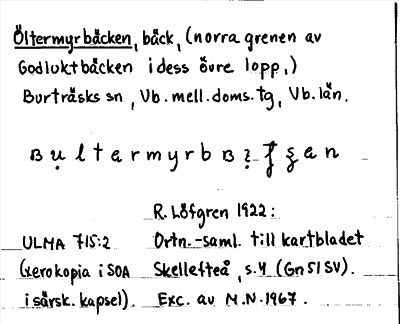 Öltermyrbäcken, bäck, (norra grenen av
Godluktbäcken i dess övre lopp,)
Burträsks sn, Vb. mell. doms. tg, Vb. län.
R. Löfgren 1922:
ULMA 715:2 Ortn.-saml. till kartbladet
(xerokopia i SOA Skellefteå, s. 4 (Gn 51 SV).
i särsk. kapsel). Exc. av M.N. 1967.